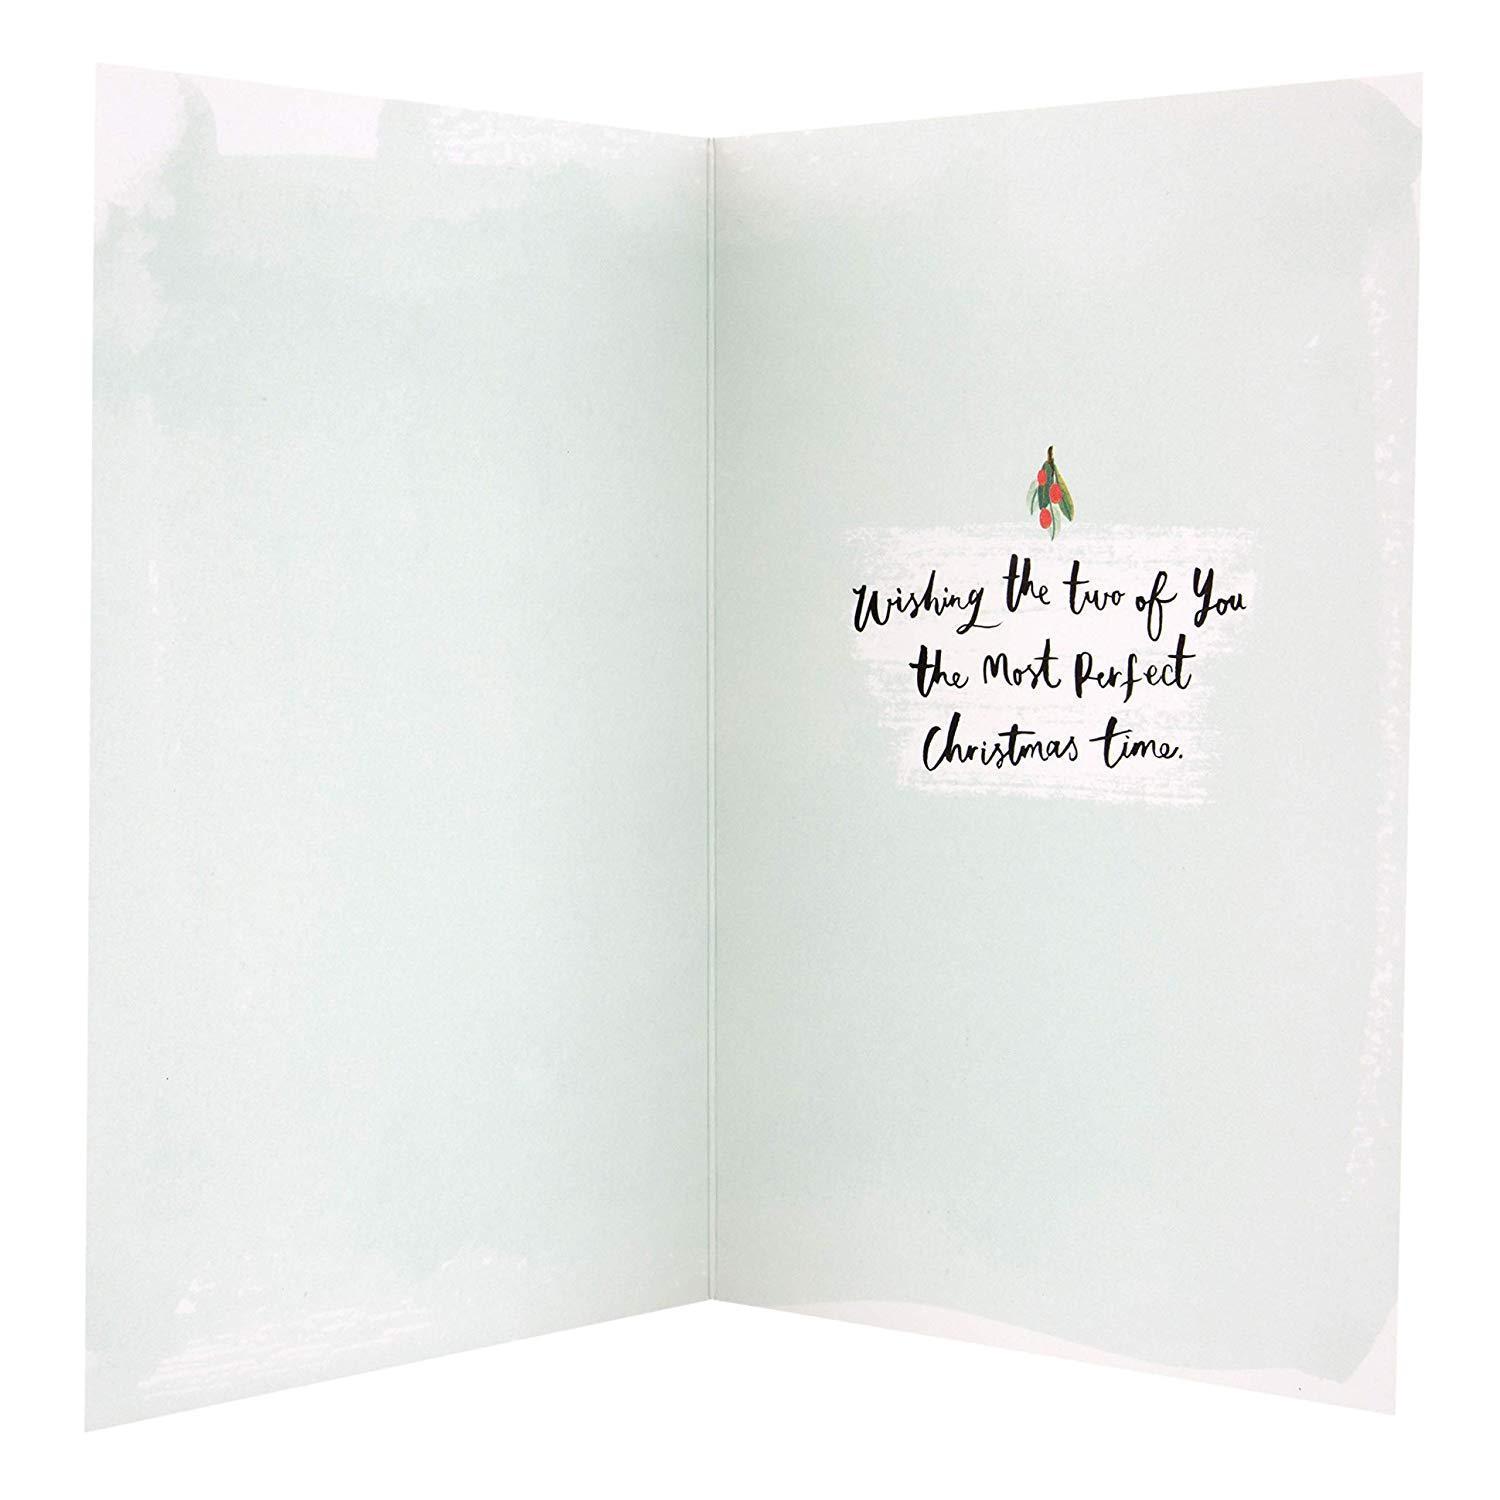 Wishing the two of You
the Most Perfect
Christmas time.